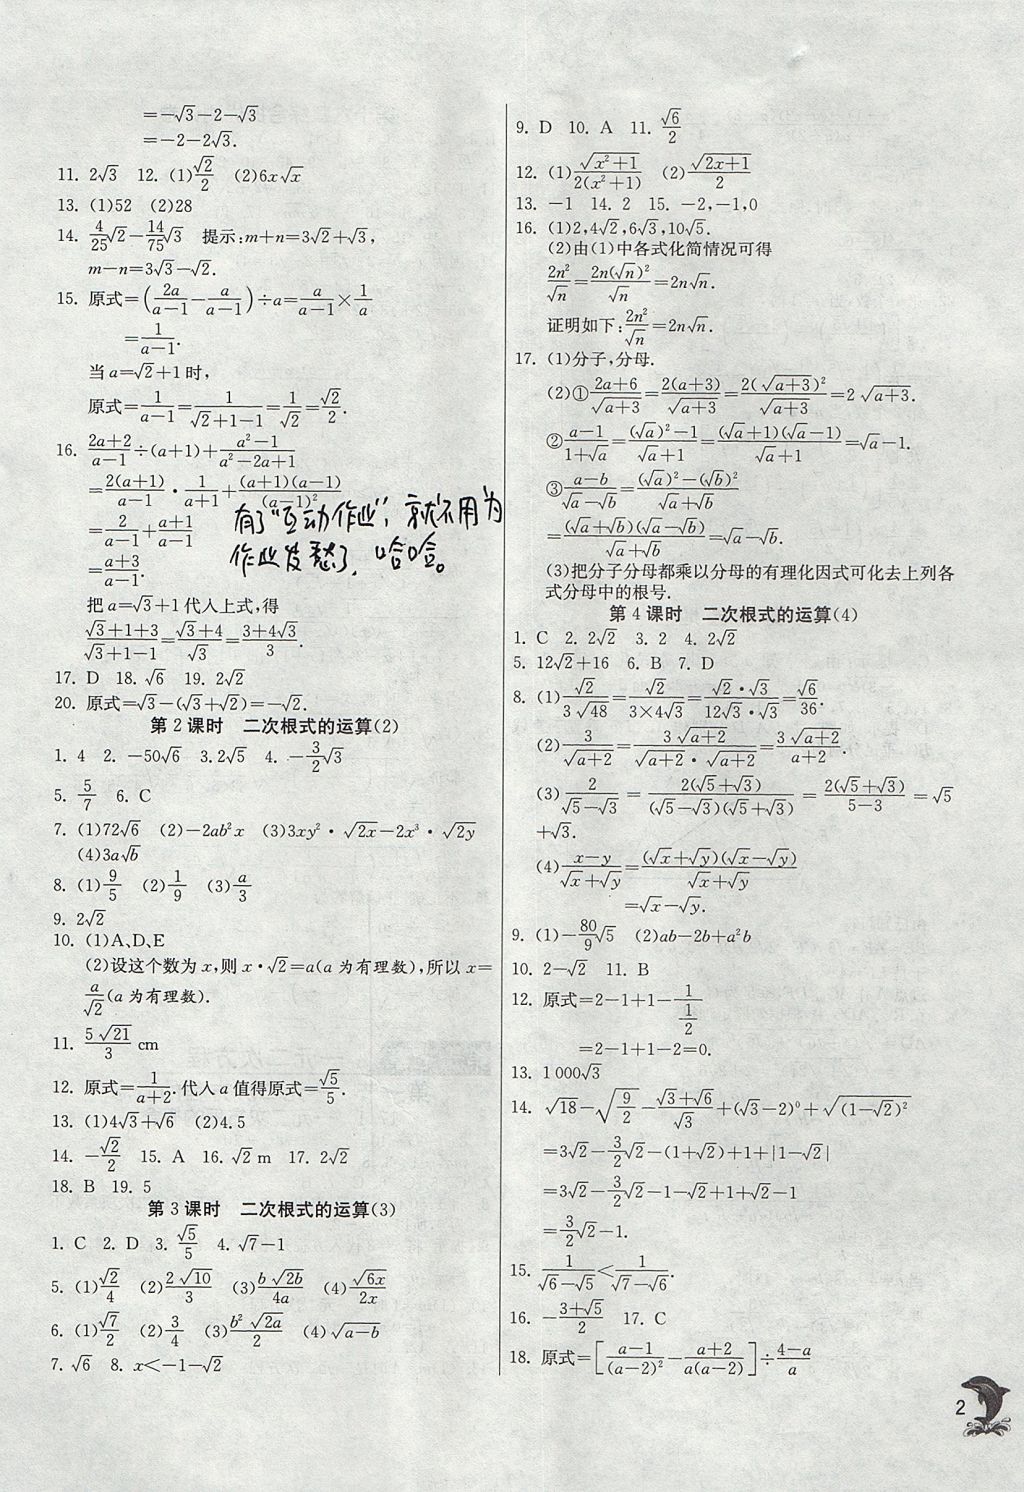 =-√3-2-√3
=-2-2√3.
11. 2√3 12. (1)√2/2 (2)6x√x
13. (1)52 (2)28
14. 4/25√2-14/75√3 提示:m+n=3√2+√3,
m-n=3√3-√2.
15. 原式=(2a/(a-1)-a/(a-1))÷a=a/(a-1)×1/a
=1/(a-1).
当a=√2+1时,
原式=1/(a-1)=1/(√2+1-1)=1/√2=√2/2.
16. (2a+2)/(a-1)÷(a+1)+(a²-1)/(a²-2a+1)
=2(a+1)/(a-1)·1/(a+1)+(a+1)(a-1)/(a-1)²
=2/(a-1)+(a+1)/(a-1)
=(a+3)/(a-1).
有了“互动作业”,就不用为
作业发愁了,哈哈。
把a=√3+1代人上式,得
(√3+1+3)/(√3+1-1)=(√3+4)/√3=(3+4√3)/3.
17. D 18. √6 19. 2√2
20. 原式=√3-(√3+√2)=-√2.
第2课时 二次根式的运算(2)
1. 4 2. -50√6 3. 2√5 4. -3/2√3
5. 5/7 6. C
7. (1)72√6 (2)-2ab²x (3)3xy²·√2x-2x³·√2y
(4)3a√b
8. (1)9/5 (2)1/9 (3)a/3
9. 2√2
10. (1)A、D、E
(2)设这个数为x,则x·√2=a(a为有理数),所以x=
a/√2(a为有理数).
11. 5√21/3 cm
12. 原式=1/(a+2).代人a值得原式=√5/5.
13. (1)4√3+√6 (2)4.5
14. -√2/2 15. A 16. √2 m 17. 2√2
18. B 19. 5
第3课时 二次根式的运算(3)
1. C 2. D 3. √5/5 4. √7-1
5. (1)√2/4 (2)2√10/3 (3)b√2b/4a (4)√6x/2x
6. (1)√7/2 (2)3/4 (3)b²√2a/2 (4)√(a-b)
7. √6 8. x<-1-√2
9. D 10. A 11. √6/2
12. (1)√(x²+1)/2(x²+1) (2)√(2x+1)/2
13. -1 14. 2 15. -2,-1,0
16. (1)2,4√2,6√3,10√5.
(2)由(1)中各式化简情况可得
2n²/√n=2n(√n)²/√n=2n√n.
证明如下:2n²/√n=2n√n.
17. (1)分子,分母.
(2)①(2a+6)/√(a+3)=2(a+3)/√(a+3)=2(√(a+3))²/√(a+3)=2√(a+3).
②(a-1)/(1+√a)=((√a)²-1)/(√a+1)=(√a+1)(√a-1)/(√a+1)=√a-1.
③(a-b)/(√a+√b)=((√a)²-(√b)²)/(√a+√b)
=(√a+√b)(√a-√b)/(√a+√b)=√a-√b.
(3)把分子分母都乘以分母的有理化因式可化去上列各
式分母中的根号.
第4课时 二次根式的运算(4)
1. C 2. 2√2 3. 2 4. 2√2
5. 12√2+16 6. B 7. D
8. (1)√2/(3√48)=√2/(3×4√3)=(√2·√3)/(12√3·√3)=√6/36.
(2)3/√(a+2)=3√(a+2)/(√(a+2)·√(a+2))=3√(a+2)/(a+2).
(3)2/(√5-√3)=2(√5+√3)/((√5-√3)(√5+√3))=2(√5+√3)/(5-3)=√5
+√3.
(4)(x-y)/(√x+√y)=(√x+√y)(√x-√y)/(√x+√y)
=√x-√y.
9. (1)-80/9√5 (2)ab-2b+a²b
10. 2-√2 11. B
12. 原式=2-1+1-1/(1/2)
=2-1+1-2=0.
13. 1 000√3
14. √18-√(9/2)-(√3+√6)/√3+(√3-2)⁰+√((1-√2)²)
=3√2-3/2√2-(1+√2)+1+|1-√2|
=3√2-3/2√2-1-√2+1+√2-1
=3/2√2-1.
15. 1/(√6-√5)<1/(√7-√6).
16. -(3+√5)/2 17. C
18. 原式=[(a-1)/(a-2)²-(a+2)/a(a-2)]÷(4-a)/a
2